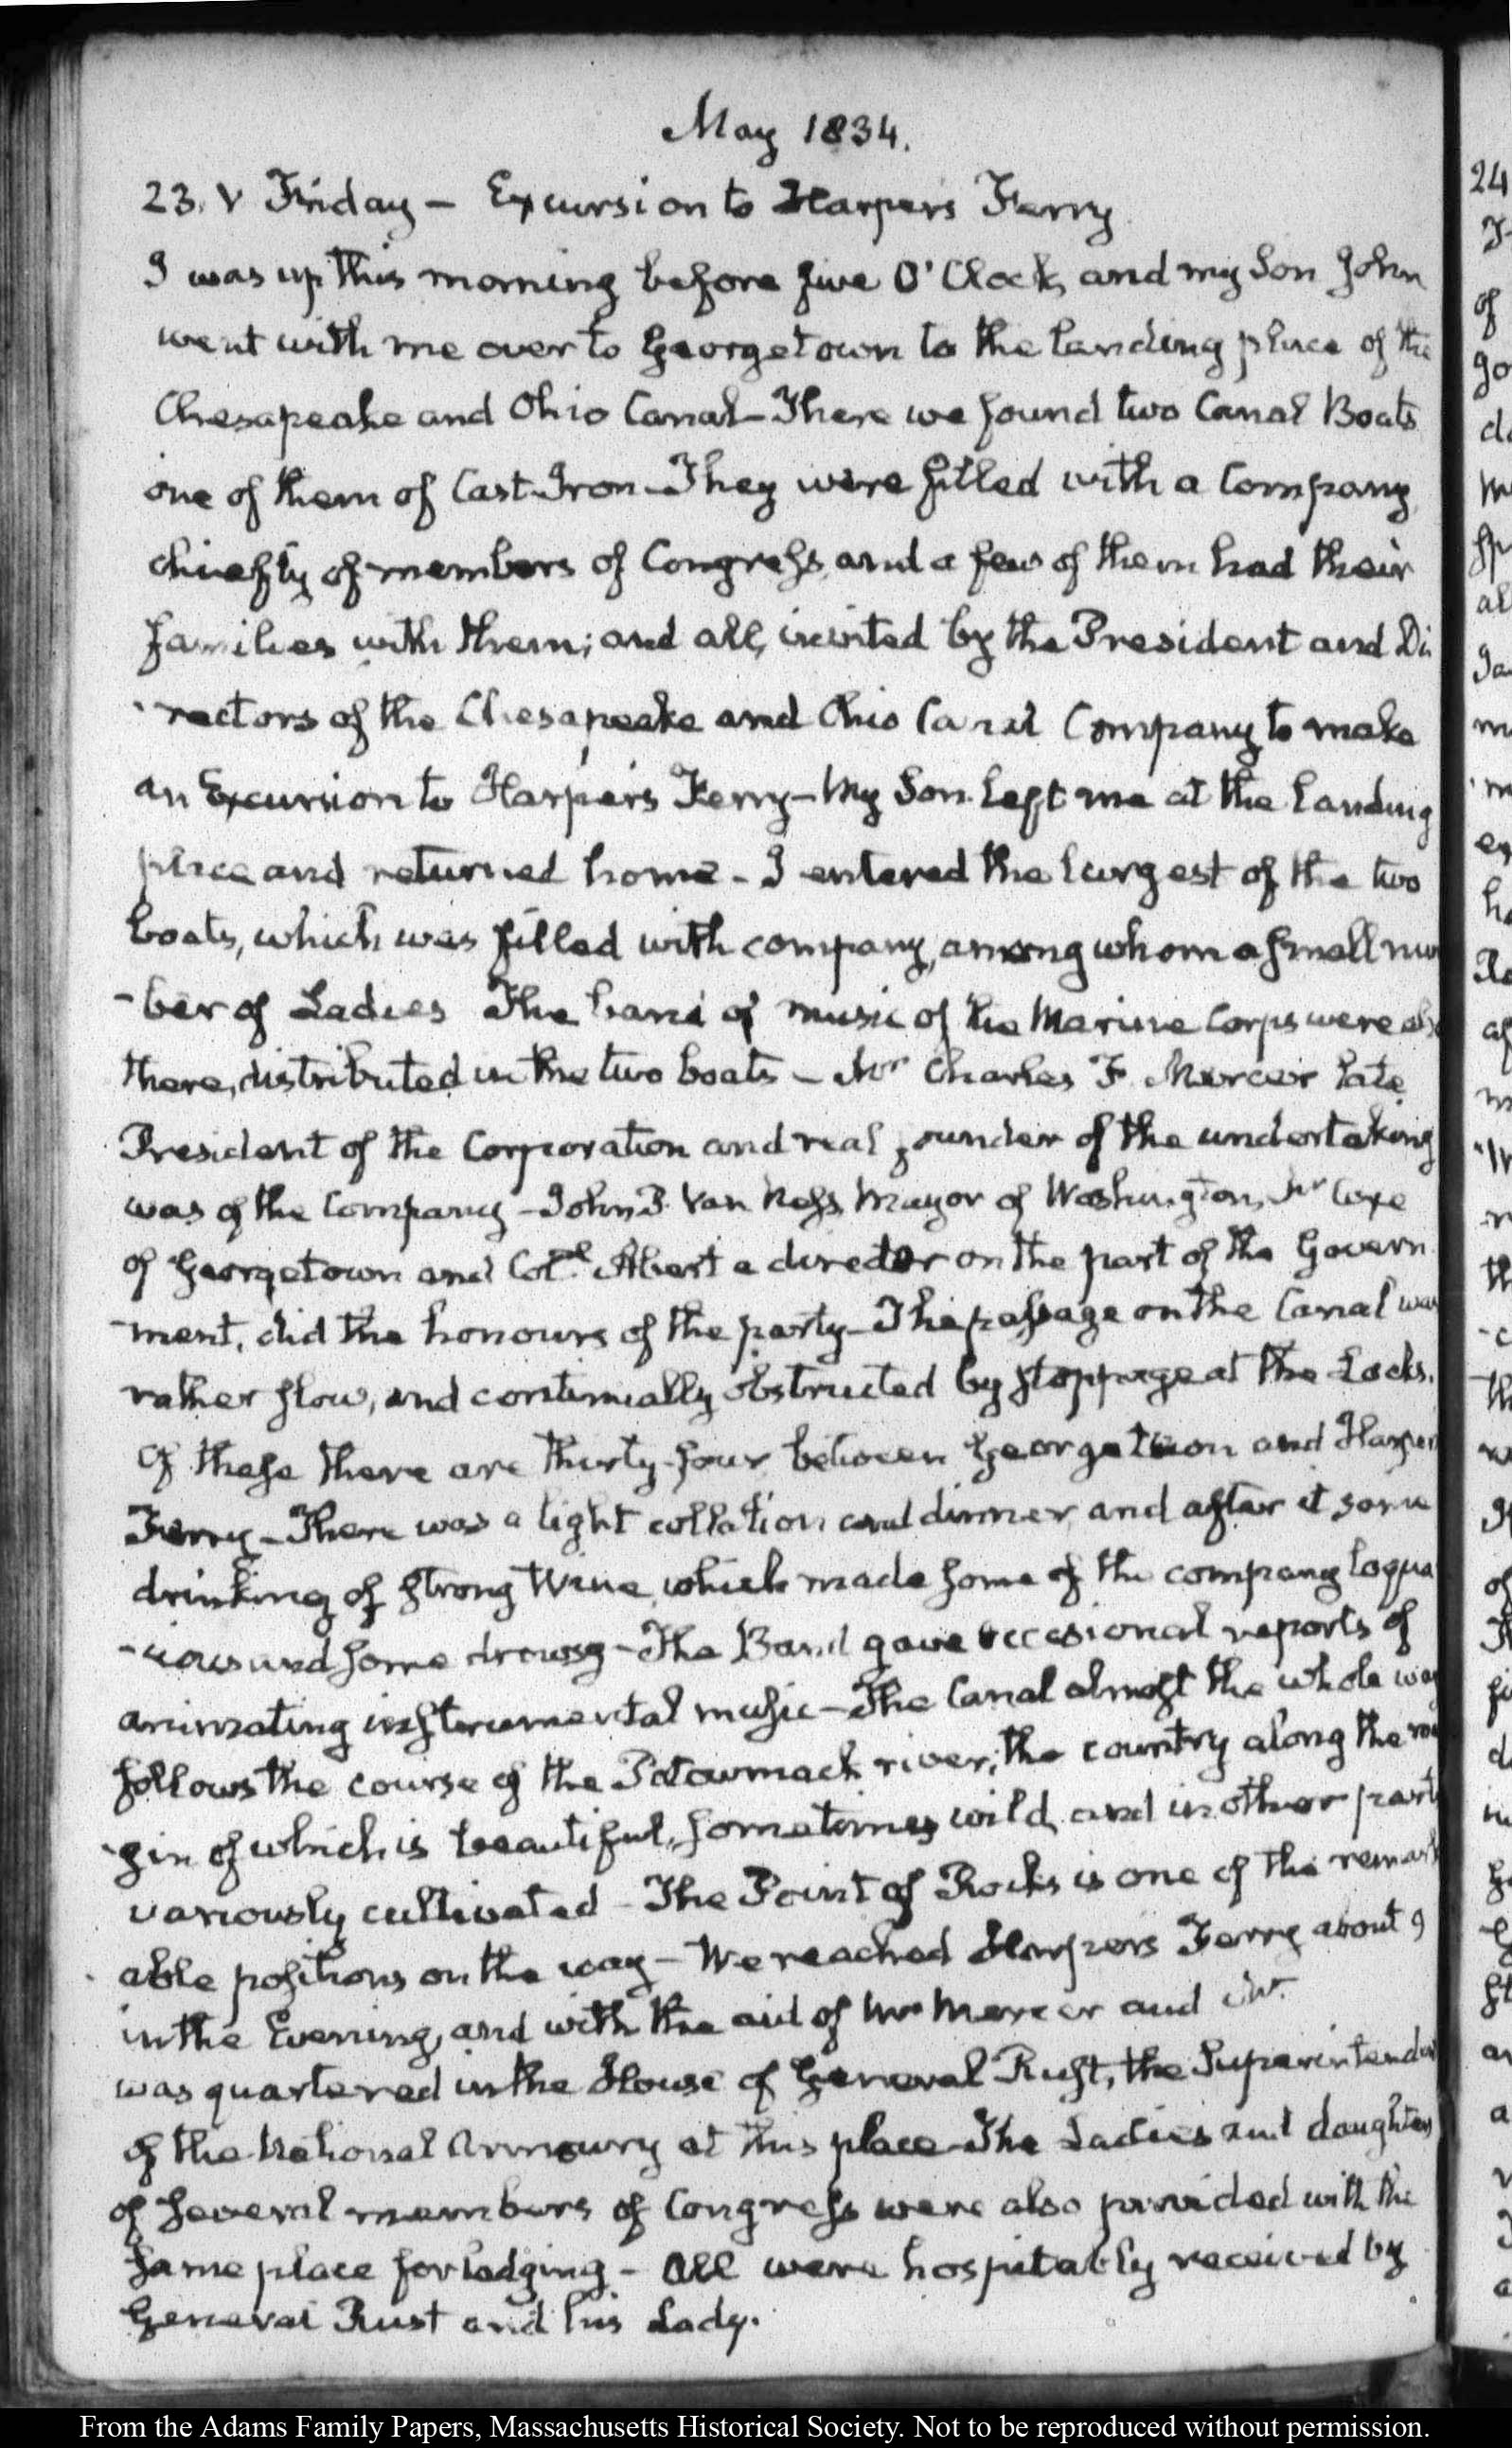 May 1834.
23. V Friday – Excursion to Harpers Ferry
I was up this morning before five O'Clock, and my Son John
went with me over to Georgetown to the landing place of the
Chesapeake and Ohio Canal – There we found two Canal Boats
one of them of Cast-Iron – They were filled with a Company,
chiefly of members of Congress, and a few of them had their
families with them; and all, invited by the President and Di
rectors of the Chesapeake and Ohio Canal Company, to make
an Excursion to Harper's Ferry – My Son left me at the Landing
place and returned home – I entered the largest of the two
boats, which was filled with company, among whom a small num
-ber of Ladies The band of music of the Marine Corps were also
there, distributed in the two boats – Mr Charles F. Mercer late
President of the Corporation and real founder of the undertaking
was of the Company – John P. Van Ness Mayor of Washington, Mr Coxe
of Georgetown and Coll. Abert a director on the part of the Govern
-ment, did the honours of the party – The passage on the Canal was
rather slow, and continually obstructed by stoppage at the Locks.
Of these there are thirty-four between Georgetown and Harper's
Ferry – There was a light collation and dinner, and after it some
drinking of strong Wine, which made some of the company loqua
-cious and some drowsy – The Band gave occasional reports of
animating instrumental music – The Canal almost the whole way
follows the course of the Potowmack river; the country along the mar
-gin of which is beautiful, sometimes wild, and in other parts
variously cultivated – The Point of Rocks is one of the remark
able positions on the way – We reached Harpers Ferry about 9
in the Evening, and with the aid of Mr Mercer and Mr.
was quartered in the House of General Rust, the Superintendent
of the National Armoury at this place – The Ladies and daughters
of several members of Congress were also provided with the
same place for lodging – All were hospitably received by
General Rust and his Lady.
24
of
From the Adams Family Papers, Massachusetts Historical Society. Not to be reproduced without permission.